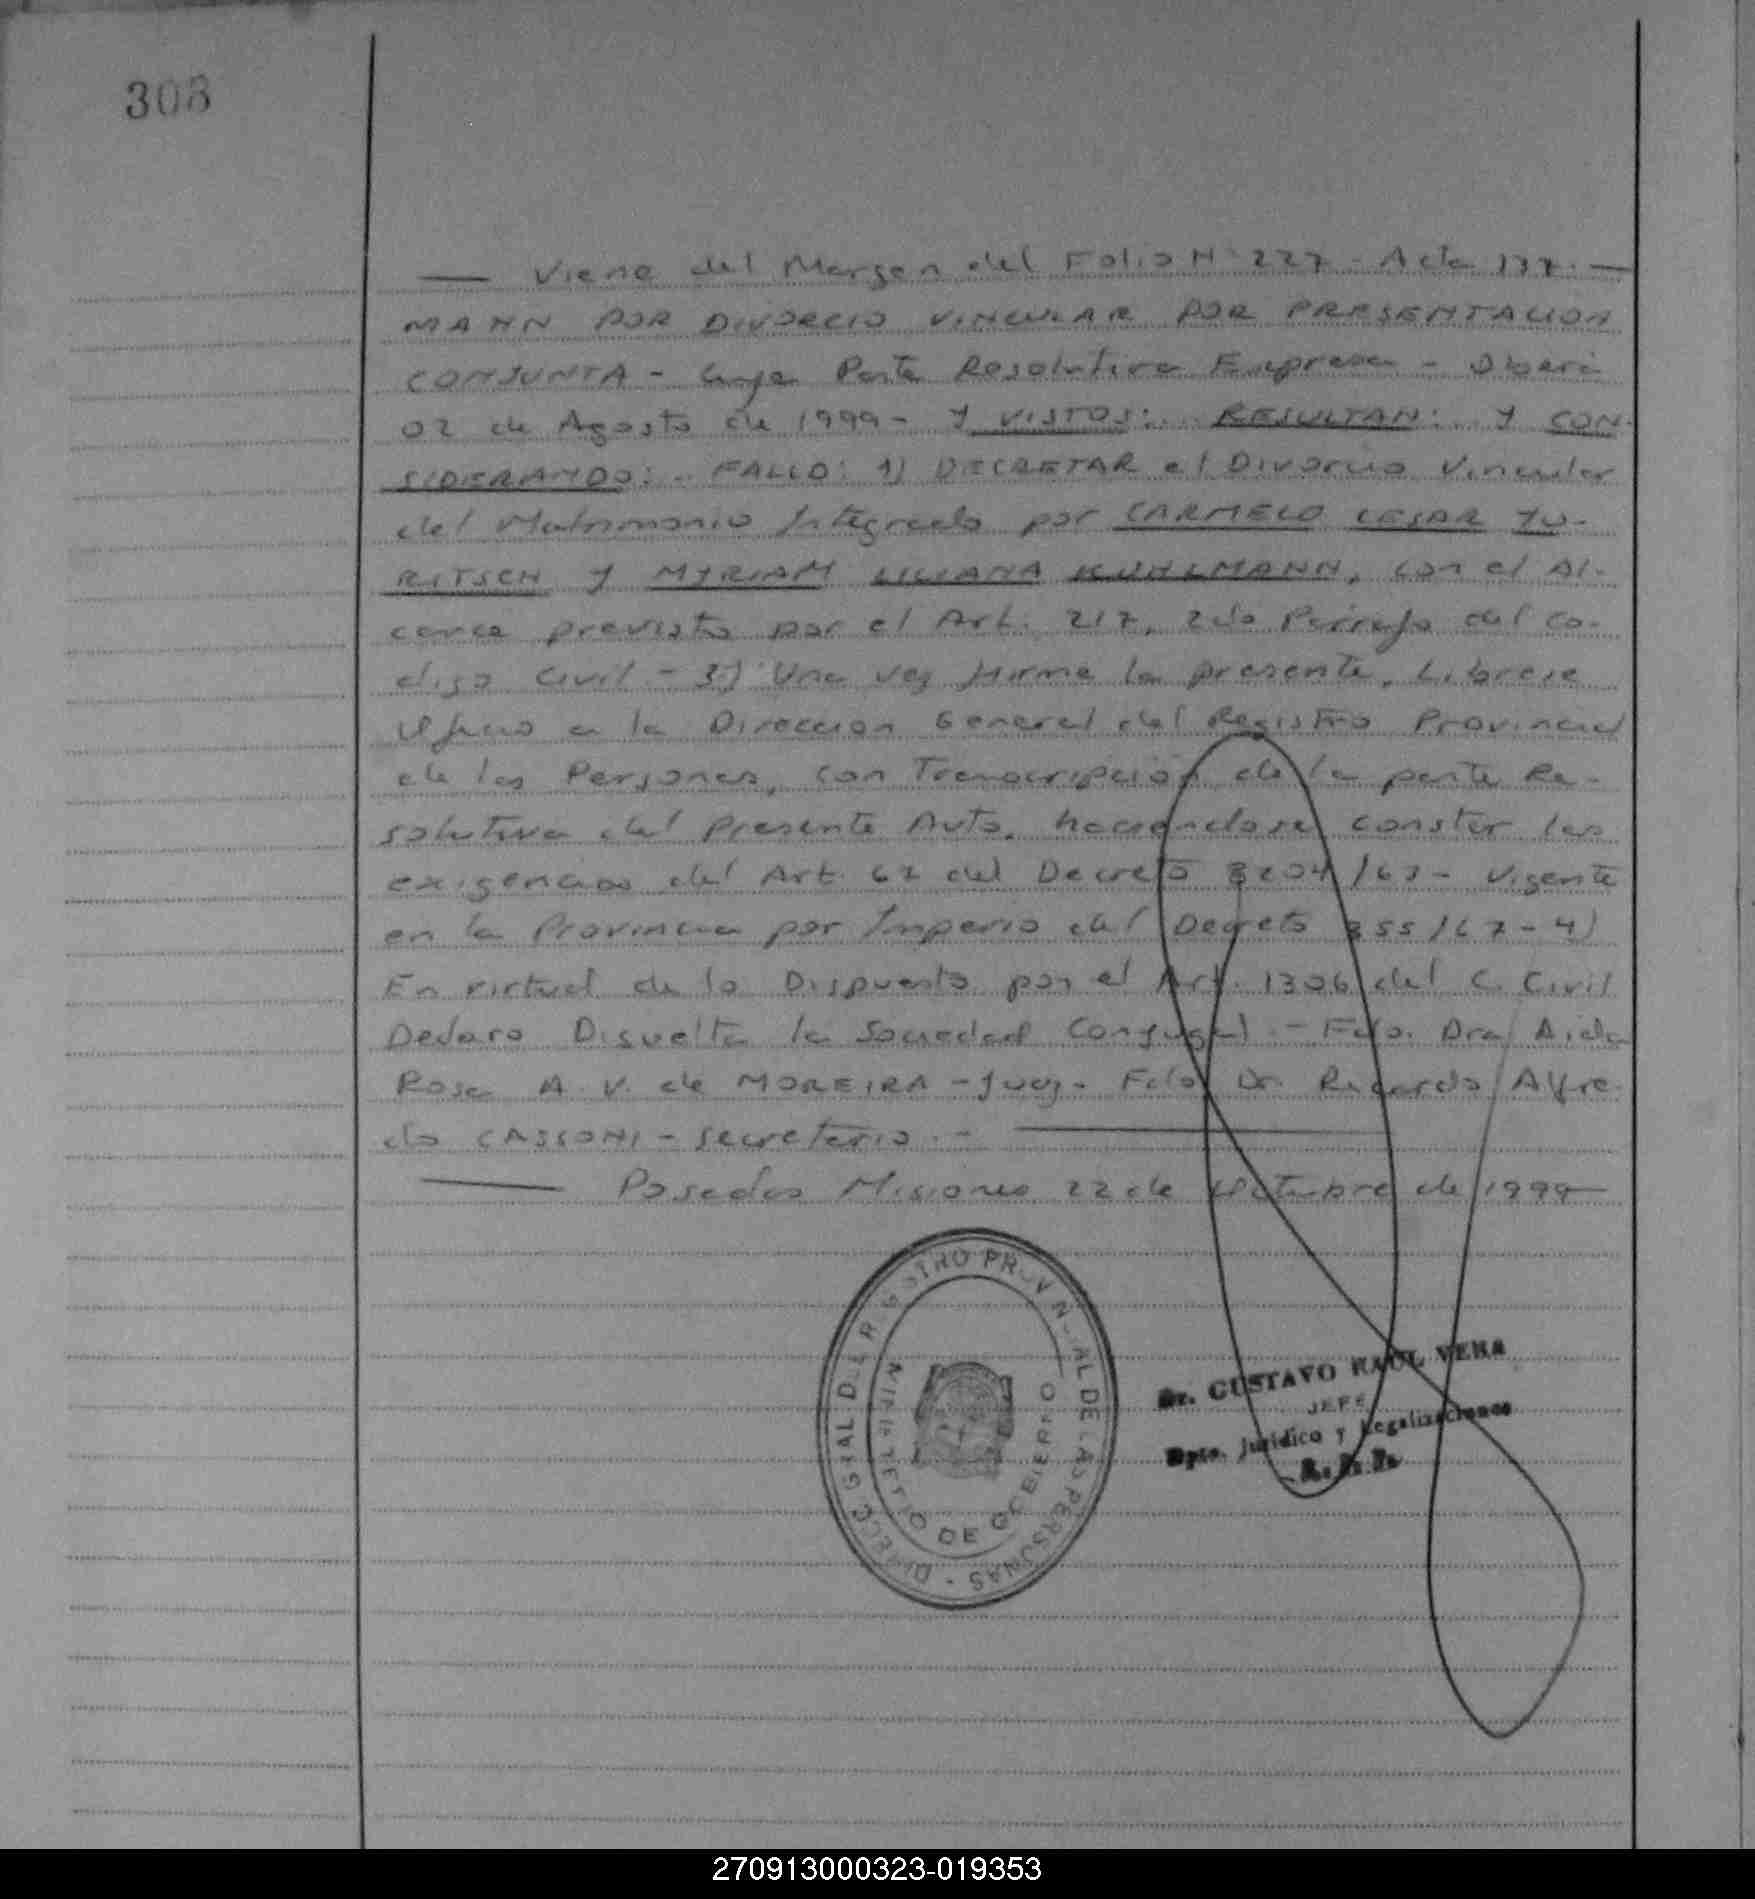 308
— Viene del Margen del Folio Nº 227 - Acta 177. —
MANN POR DIVORCIO VINCULAR POR PRESENTACION
CONJUNTA - Cuya Parte Resolutiva Expresa - Oberá
02 de Agosto de 1999 - Y VISTOS: .. RESULTAN: .. Y CON-
SIDERANDO: .. FALLO: 1) DECRETAR el Divorcio Vincular
del Matrimonio Integrado por CARMELO CESAR YU-
RITSCH Y MYRIAM LILIANA KUHLMANN, con el Al-
cance previsto por el Art. 217, 2do Párrafo del Co-
digo Civil - 3) Una vez firme la presente, Librese
Oficio a la Direccion General del Registro Provincial
de las Personas, con Transcripción de la parte Re-
solutiva del Presente Auto, haciendose constar las
exigencias del Art. 62 del Decreto 8204/63 - Vigente
en la Provincia por Imperio del Decreto 355/67 - 4)
En virtud de lo Dispuesto por el Art. 1306 del C. Civil
Declaro Disuelta la Sociedad Conyugal. - Fdo. Dra Aida
Rosa A. V. de MOREIRA - Juez - Fdo Dr. Ricardo Alfre
do CASSONI - Secretario. - —
— Posadas Misiones 22 de Octubre de 1999 —
DIRECC. GRAL DEL REGISTRO PROVINCIAL DE LAS PERSONAS -
MINISTERIO DE GOBIERNO
Dr. GUSTAVO RAUL VERA
JEFE
Dpto. Jurídico y Legalizaciones
R. P. P.
270913000323-019353